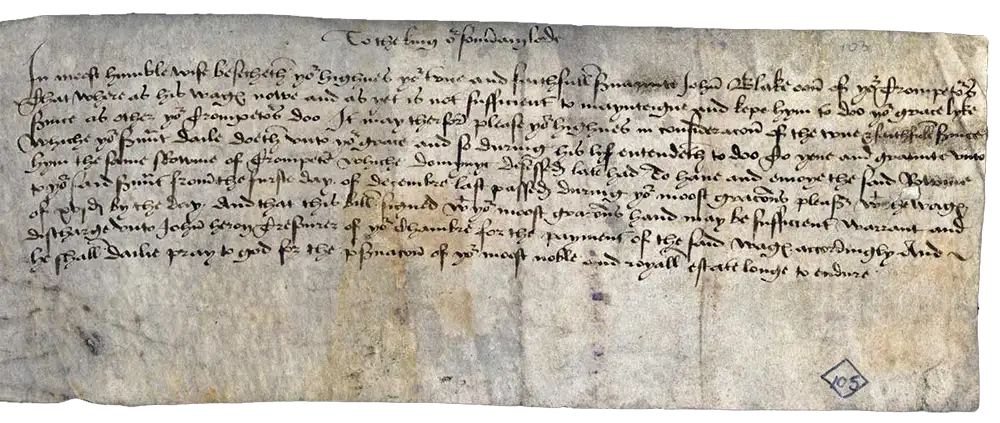 To the king oʳ souv̄ain lorde
In moost humble wise besecheth yoʳ highnes yoʳ true and faithfull sv̄uaunte John Blake oon of yoʳ Trompetꝭ
That where as his wagꝭ nowe and as yet is not sufficient to mayntaigne and kepe hym to doo yoʳ grace lyke
sv̄uice as other yoʳ Trompetꝭ doo It may therfor please yoʳ highnes in consideracōn of the true & faithfull sv̄uice
Whiche yoʳ sv̄unt dailie doeth unto yoʳ grace and so during his lyf entendeth to doo To yeve and graunte unto
hym the same Rowme of Trompetʳ whiche Domynyc decessed late had To have and enioye the said Rowme
to yoʳ said sv̄unt from the furst day of decembre last passed during yoʳ moost gracious pleasʳ wᵗ the wagꝭ
of xvj d by the day And that this bill signed wᵗ yoʳ moost gracious hand may be sufficient warrant and
discharge unto John heron Tresourer of yoʳ Chambre for the payment of the said wagꝭ accordingly And
he shall dailie pray to god for the pͬsv̄uacōn of yoʳ moost noble and royall estate longe to endure
103
105